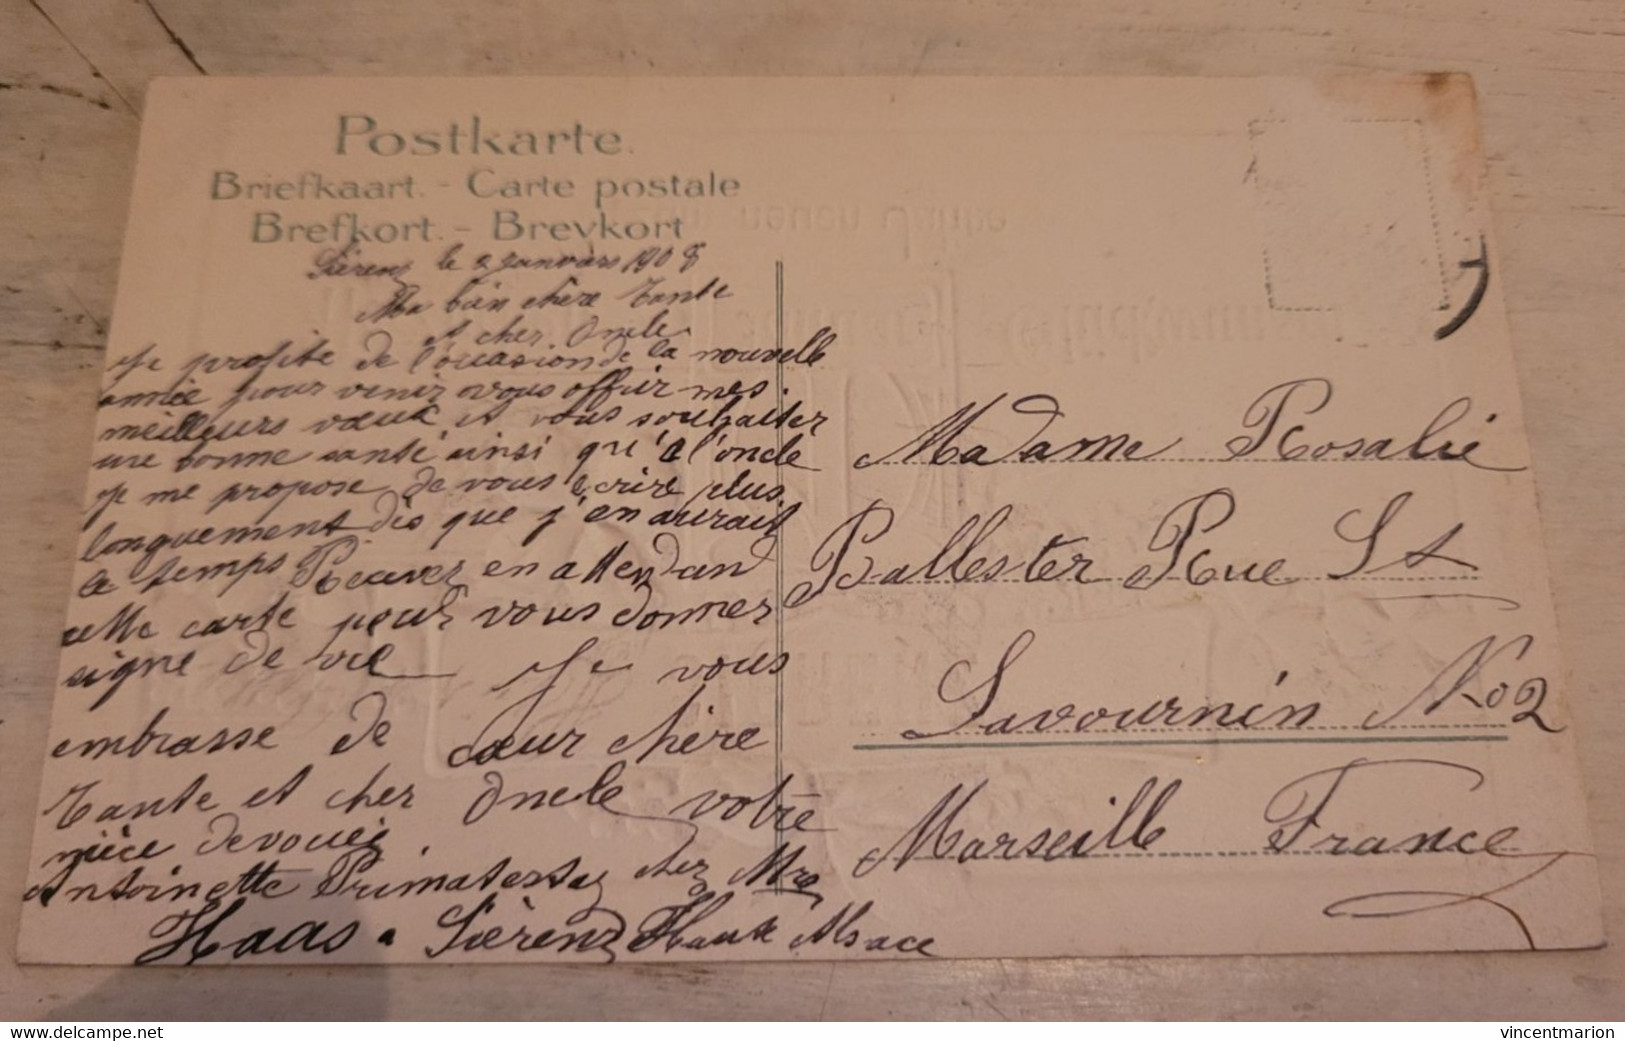 Postkarte.
Briefkaart. - Carte postale
Brefkort. - Brevkort
Sierenz le 2 janviers 1908
Ma bien chère Tante
et cher Oncle
Je profite de l'ouasion de la nouvelle
année pour venir vous offrir mes
meilleurs voeux et vous souhaiter
une bonne santé ainsi qu'à l'oncle
Je me propose de vous écrire plus
longuement dès que j'en aurait
le temps Recevez en attendand
cette carte pour vous donner
signe de vie Je vous
embrasse de coeur chère
Tante et cher Oncle votre
nièce devouéé
Antoinette Primatesta chez Mre
Haas a Sierenz Haute Alsace
Madame Rosalie
Ballester Rue St
Savournin No 2
Marseille France
delcampe.net
vincentmarion